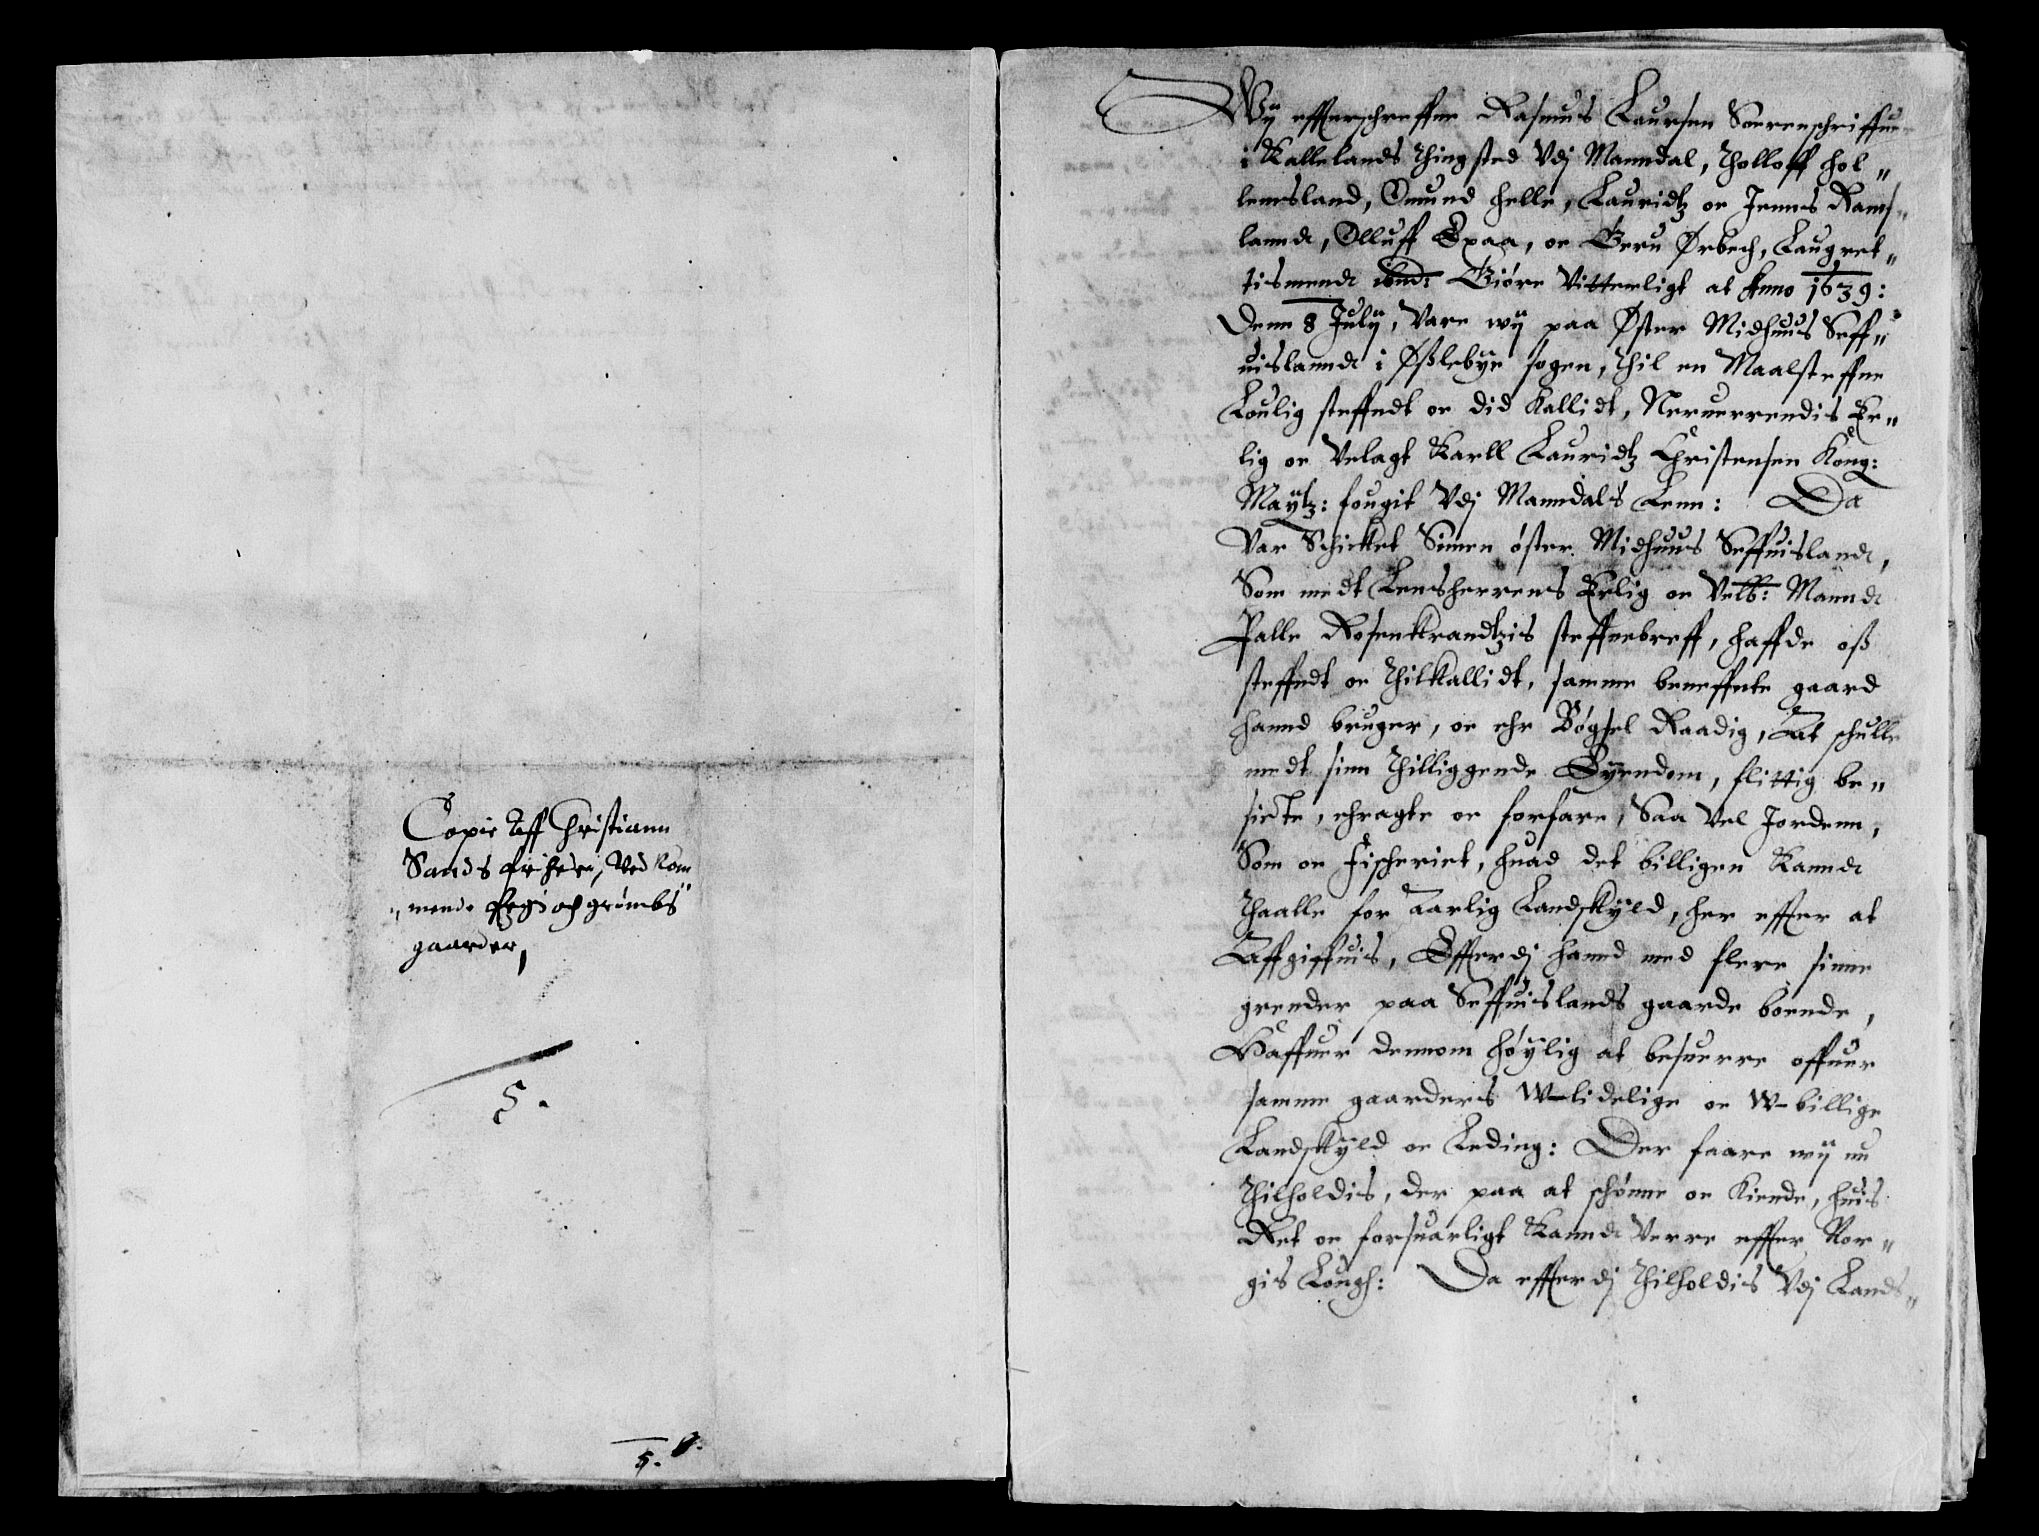 Copie Aff Christiann
Sands friheder, Ved Kom
„mende Øegs och grimbs
gaarder,
5.
5.
Wy effterschreffne Rasmus Laursen Soerenschriffuer
i Hallelands Thingsted Vdj Manndal, Tholloff Hol„
lenesland, Omund Helle, Lauridtz oc Jenns Rams„
lannd, Olluff Spaa, oc Geru Ørbech, Laugret„
tismend ibnd: Giøre Vitterligt at Anno 1639:
Denn 8 Julij, Vare wij paa Øster Midhuus Seff„
uislannd i Øsslebye sogen, Thil en Maalsteffne
Loulig steffndt oc did Kallidt, Neruerrendis Er„
lig oc Velagt Karll Lauridtz Christensen Kong:
Maytz: fougit Vdj Manndals Lenn: Da
Var Schicket Simen øster Midhuus Seffuisland,
Som medt Lensherrens Erlig oc Velb: Mannd
Palle Rosenkrandtzis steffnebreff, haffde oss
steffndt oc Thilkallidt, samme beneffnte gaard
hannd bruger, oc ehr Bøgsel Raadig, At schulle
medt sinn Thilliggende Eyendom, flittig be„
sicte, ehragte oc forfare, Saa Vel Jordenn,
Som oc Fischeriet, huad det billigen Kannd
Thaalle for Aarlig Landskyld, her effter at
Affgiffuis, Effterdj hannd med flere sinne
grender paa Seffuislands gaarde boende,
Haffuer dennom høylig at besuerre offuer
samme gaarders W-lidelige oc W-billige
Landskyld oc Leding: Der faare wij nu
Thilholdis, der paa at schønne oc Kiende, huis
Ret oc forsuarligt Kannd Verre effter Nor„
gis Lough: Da effterdj Thilholdis Vdj Lands„